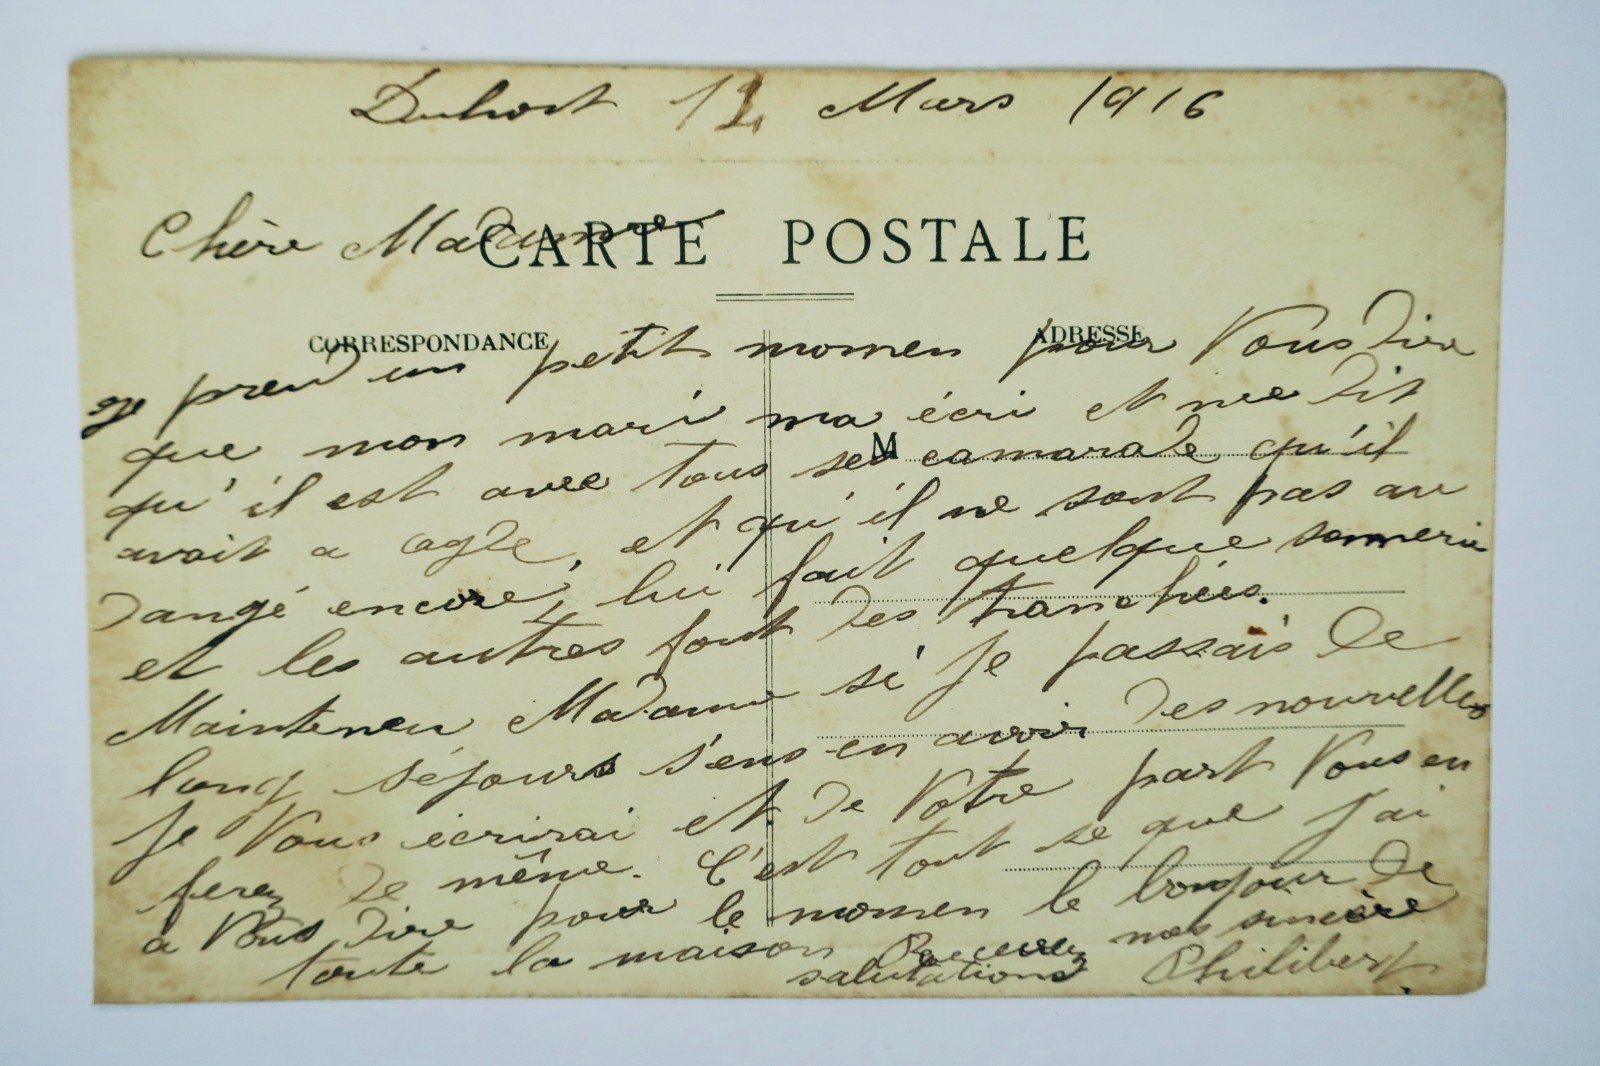 Duhort 12 Mars 1916
Chère Madame
CARTE POSTALE
CORRESPONDANCE
ADRESSE
Je prend un petit momen pour Vous dire
que mon mari ma écri et me dit
M
qu'il est avec tous ses camarade qu'il
avait a agde, et qu'il ne sont pas au
dangé encore, lui fait quelque
et les autres font des tranchées.
Maintenen Madame si je passais de
long séjours s'ens en avoir des nouvelles
je Vous écrirai et de Votre part Vous en
ferez de même. C'est tout se que j'ai
a Vous dire pour le momen le bonjour de
toute la maison Recevez nos sincère
salutations Philibert.